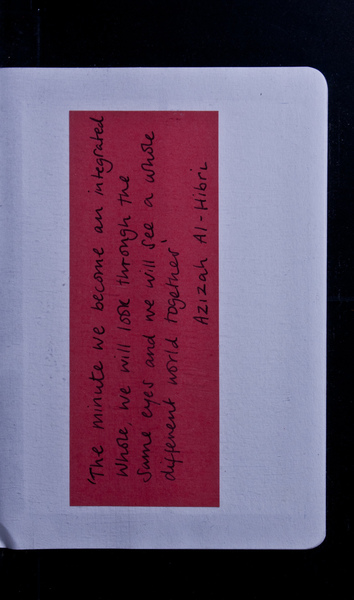 'The minute we become an integrated
whole, we will look through the
same eyes and we will see a whole
different world together'
Azizah Al-Hibri